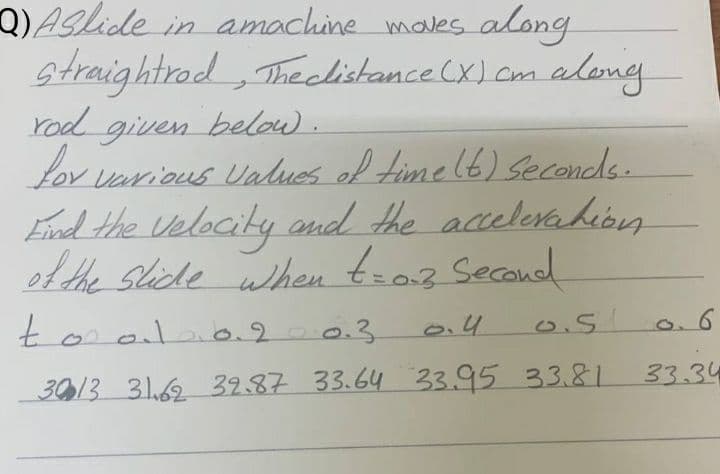 Q) A Slide in amachine moves along
straightrod, The distance (X) cm along
rod given below.
for various Values of time (t) Seconds.
Find the Velocity and the acceleration
of the Slide when t=0.3 Second
t 0 0.1 0.2 0.3 0.4 0.5 0.6
30.13 31.62 32.87 33.64 33.95 33.81 33.34